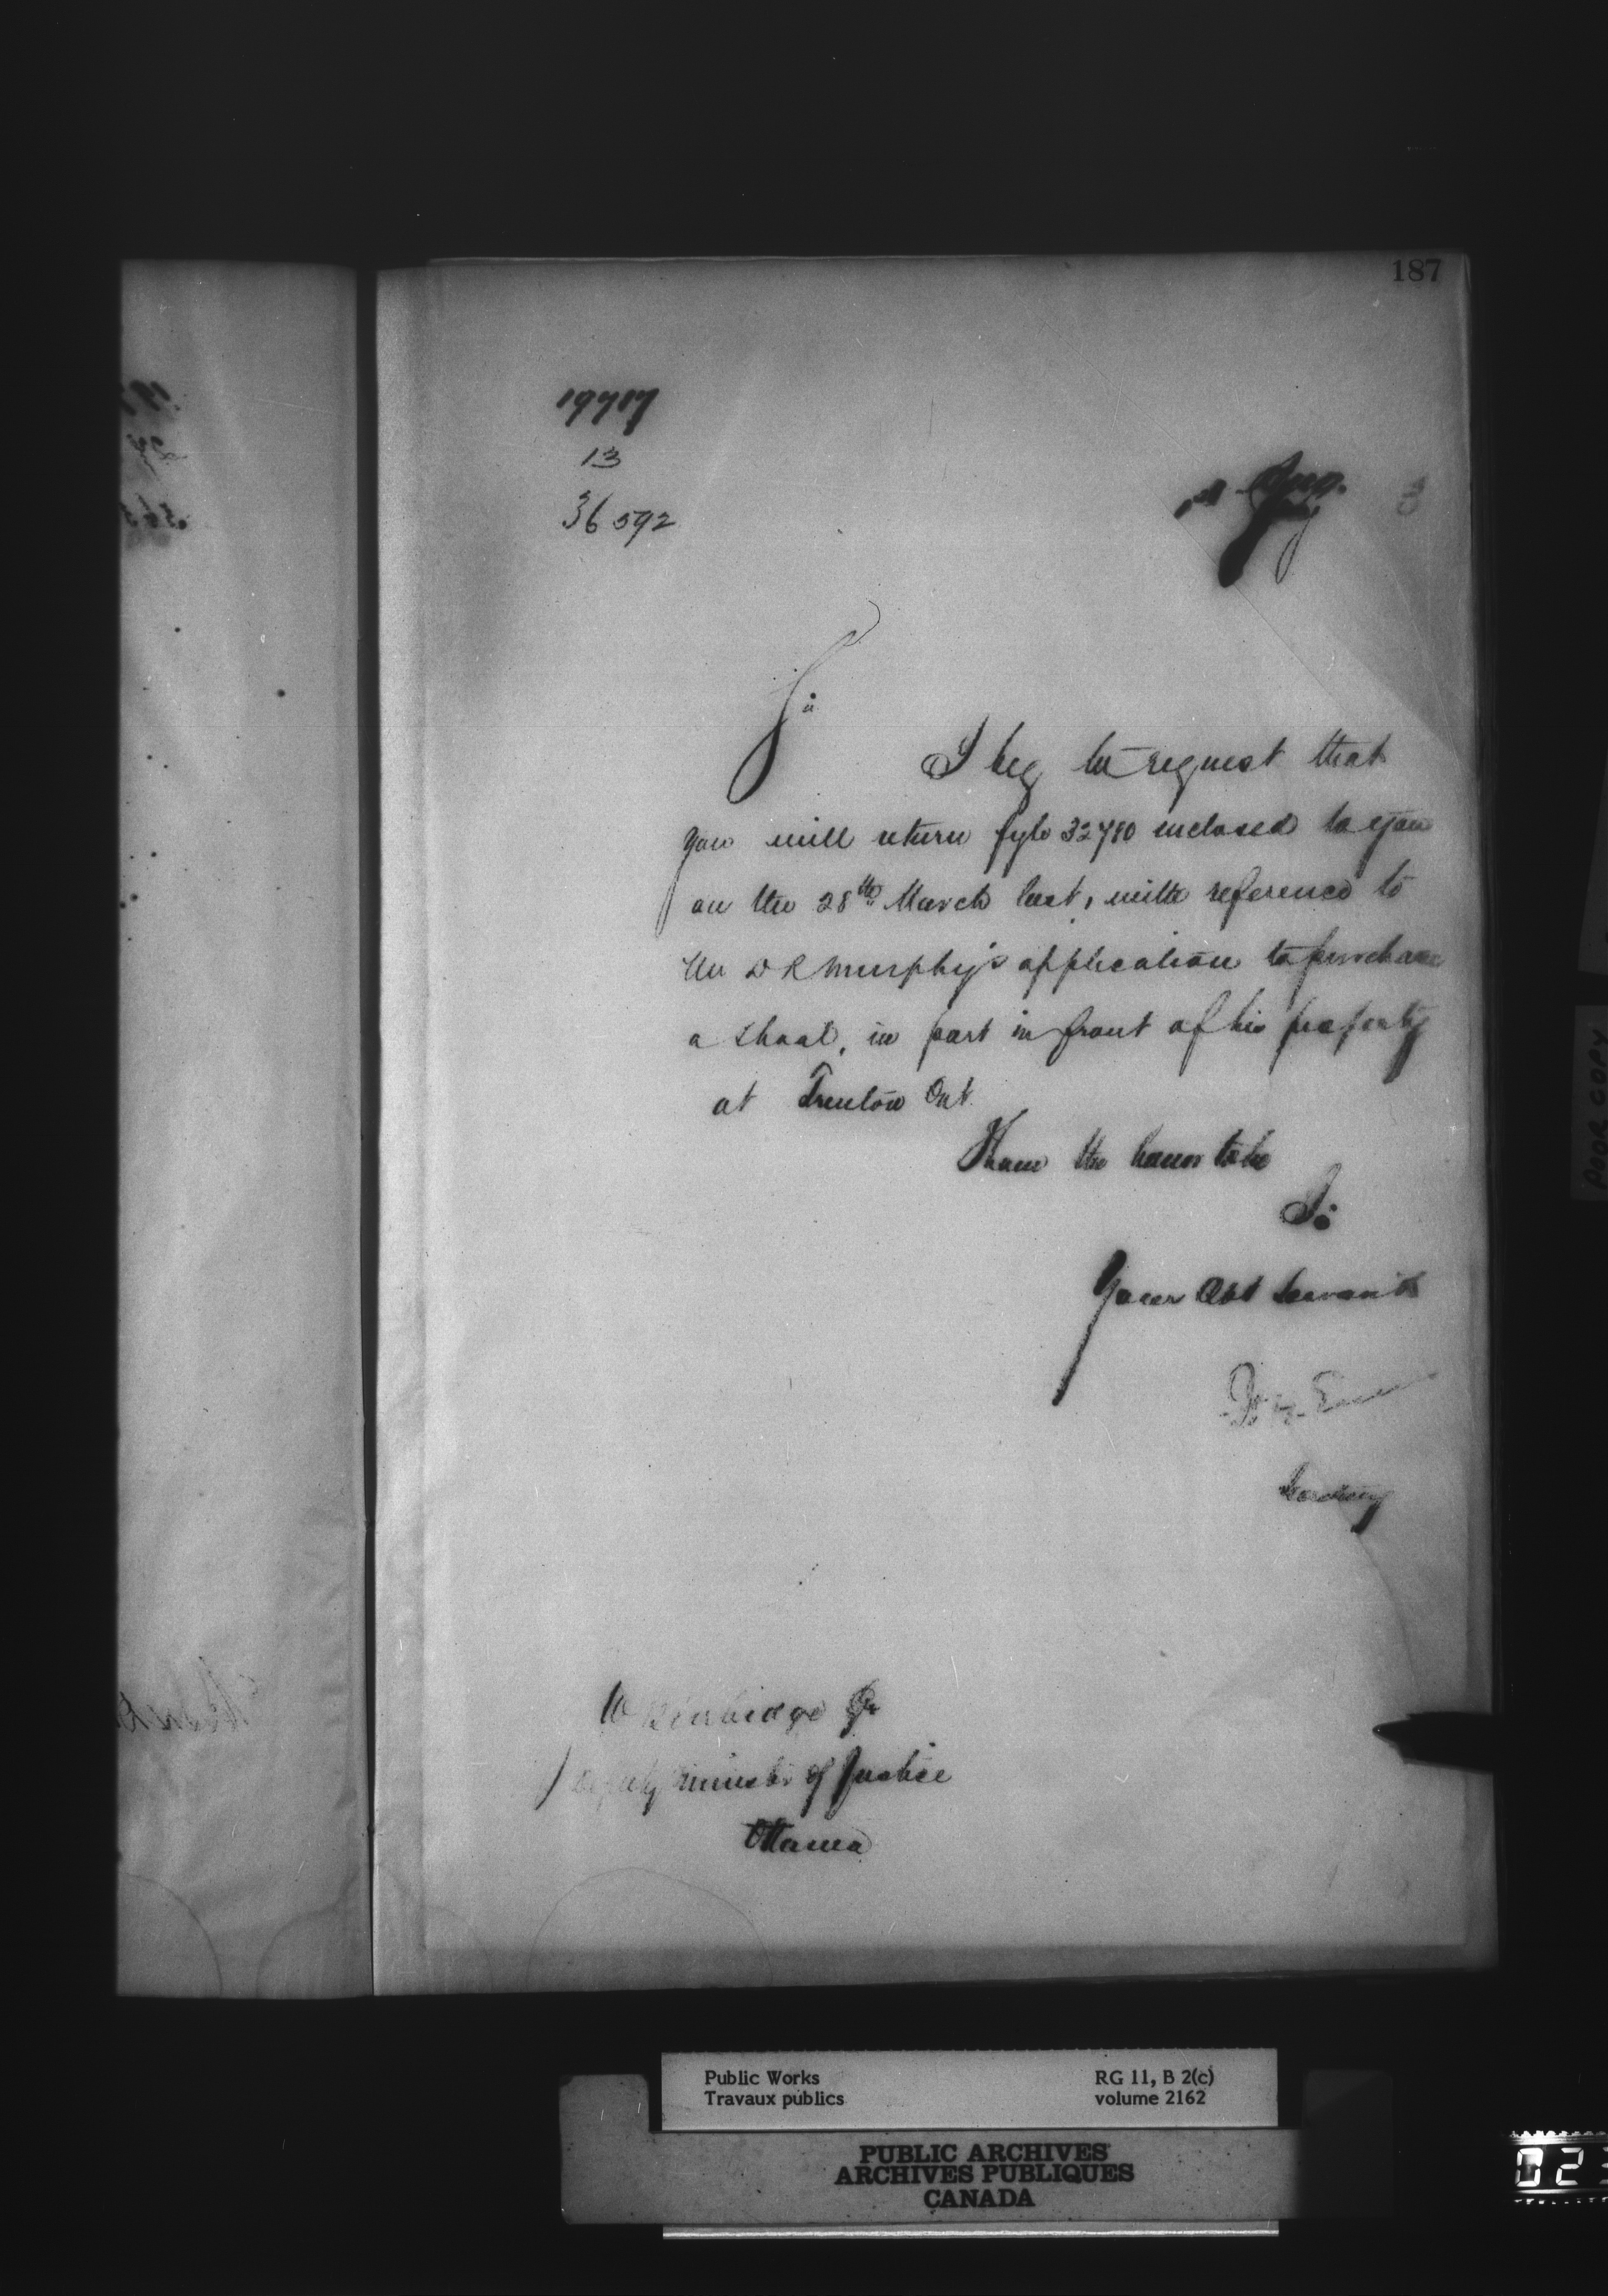 187
19717
13
36592
Aug.
Sir
I beg to request that
you will return fyle 32780 enclosed to you
on the 28th March last, with reference to
Mr D R Murphy's application to purchase
a shoal, in part in front of his property
at Trenton Ont
I have the honor to be
Sir
Your Obt Servant
Secretary
W Burbidge Esq
Deputy Minister of Justice
Ottawa
POOR COPY
Public Works
Travaux publics
RG 11, B 2(c)
volume 2162
PUBLIC ARCHIVES
ARCHIVES PUBLIQUES
CANADA